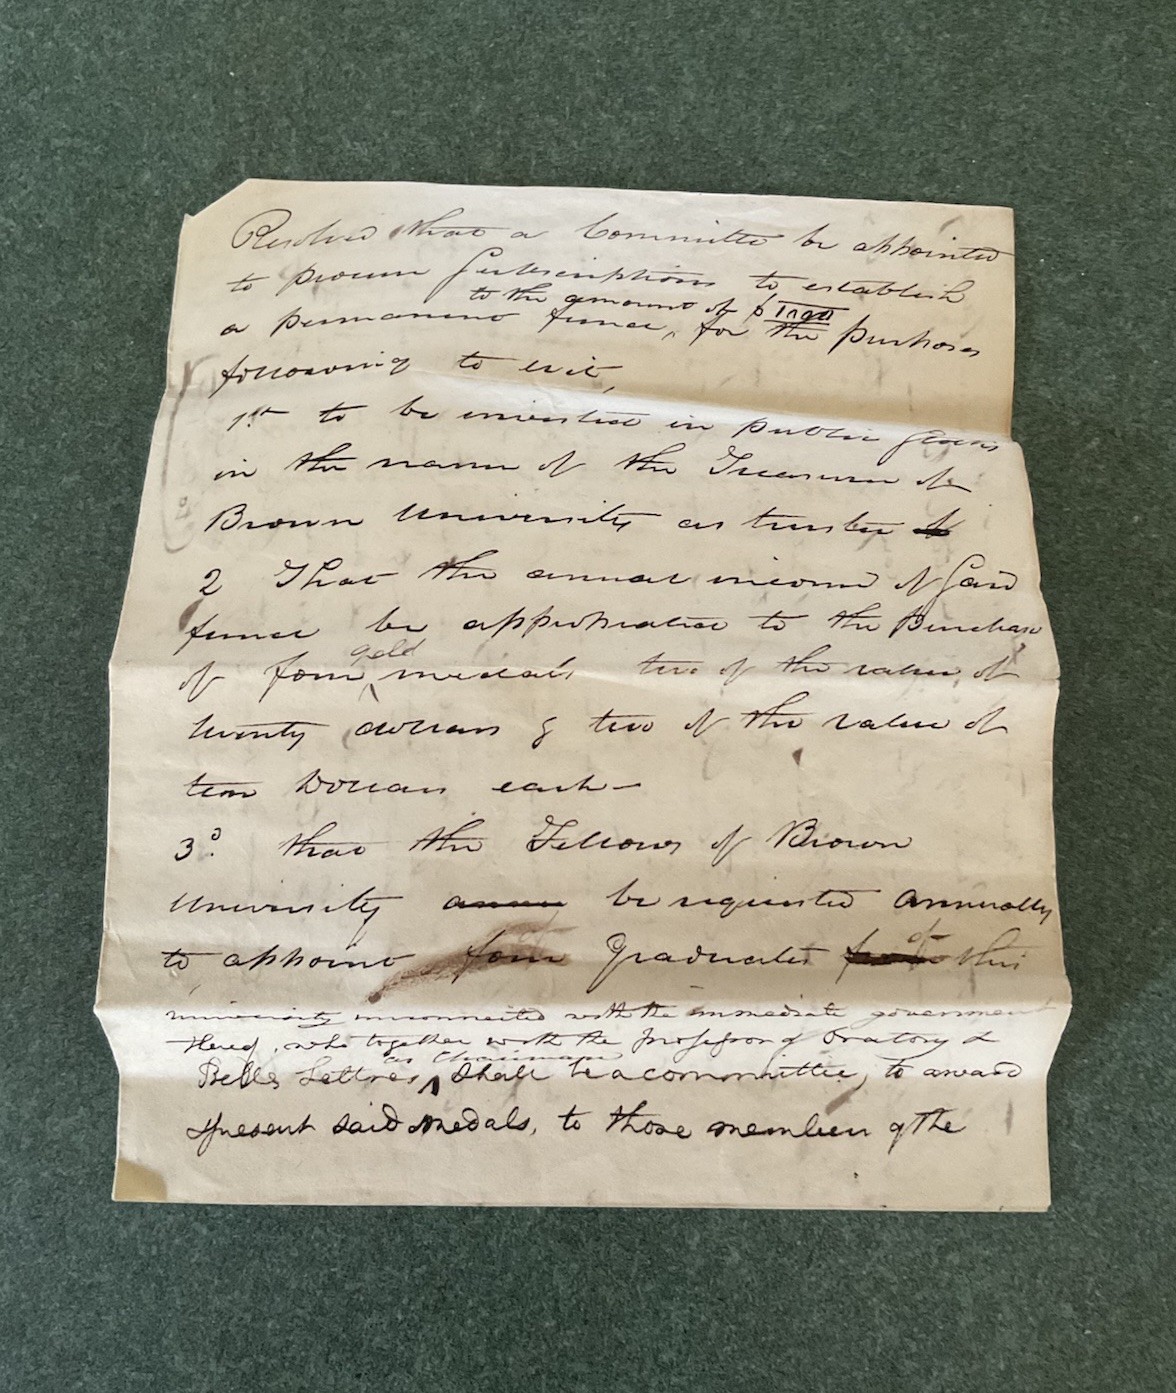 Resolved that a Committe be appointed
to procure Subscriptions to establish
to the amount of $
a permanent fund, for the purposes
following to wit,
1st to be invested in public Stocks
in the name of the Treasurer of
Brown University as trustee
2 That the annual income of said
fund be appropriated to the Purchase
gold
of four medals two of the value of
twenty dollars & two of the value of
ten Dollars each—
3d. that the Fellows of Brown
University be requested annually
of
to appoint four Graduates this
university unconnected with the immediate government
thereof, who together with the Professor of Oratory &
as Chairman
Belles Lettres, shall be a committee, to award
present said medals, to those members of the